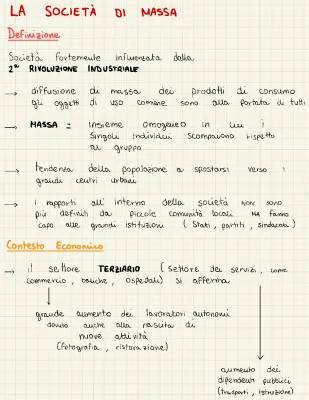 LA SOCIETÀ DI MASSA
Definizione
Società fortemente influenzata dalla
2ª RIVOLUZIONE INDUSTRIALE
→ diffusione di massa dei prodotti di consumo
gli oggetti di uso comune sono alla portata di tutti
→ MASSA = insieme omogeneo in cui i
singoli individui scompaiono rispetto
al gruppo
→ tendenza della popolazione a spostarsi verso i
grandi centri urbani
→ i rapporti all'interno della società non sono
più definiti da piccole comunità locali MA fanno
capo alle grandi istituzioni (Stati, partiti, sindacati)
Contesto Economico
→ il settore TERZIARIO (settore dei servizi, come
commercio, banche, ospedali) si afferma
grande aumento dei lavoratori autonomi
dovuto anche alla nascita di
nuove attività
(fotografia, ristorazione)
aumento dei
dipendenti pubblici
(trasporti, istruzione)